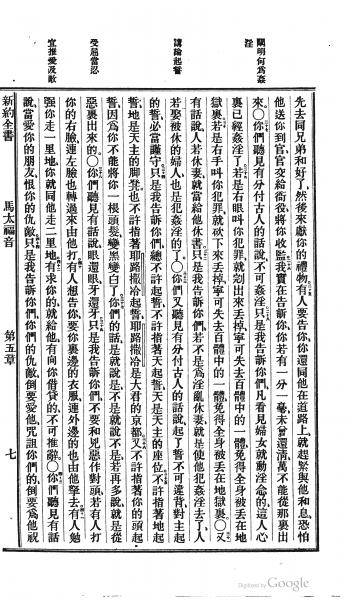 闡明何爲姦淫
講論起誓
受屈當忍
宜推愛及敵
先去同兄弟和好了然後來獻你的禮物有人要告你你還同他在道路上就趕緊與他和息恐怕
他送你到官官交給衙役將你收監我實在告訴你你若有一分一毫未曾還清萬不能從那裏出
來〇你們聽見有分付古人的話說不可姦淫只是我告訴你們凡看見婦女就動淫念的這人心
裏已經姦淫了若是右眼叫你犯罪就剜出來丟掉寧可失去百體中的一體免得全身被丟在地
獄裏若是右手叫你犯罪就砍下來丟掉寧可失去百體中的一體免得全身被丟在地獄裏〇又
有話說人若休妻就當給他休書只是我告訴你們若不是爲淫亂休妻就是使他犯姦淫去了人
若娶被休的婦人也是犯姦淫的了〇你們又聽見有分付古人的話說起了誓不可違背對主起
的誓必當謹守只是我告訴你們總不許起誓不許指著天起誓天是天主的座位不許指著地起
誓地是天主的脚凳也不許指著耶路撒冷起誓耶路撒冷是大君的京都又不許指著你的頭起
誓因爲你不能將你一根頭髮變黑變白了你們的話是就說是不是就說不是若再多說就是從
惡裏出來的〇你們聽見有話說眼還眼牙還牙只是我告訴你們不要和兇惡作對頭若有人打
你的右臉連左臉也轉過來由他打有人想告你要你裏邊的衣服連外邊的也由他拏去有人勉
強你走一里地你就同他走二里地有求你的就給他有向你借貸的不可推辭〇你們聽見有話
說當愛你的朋友恨你的仇敵只是我告訴你們你們的仇敵倒要愛他咒詛你們的倒要爲他祝
新約全書 馬太福音 第五章 七
Digitized by Google